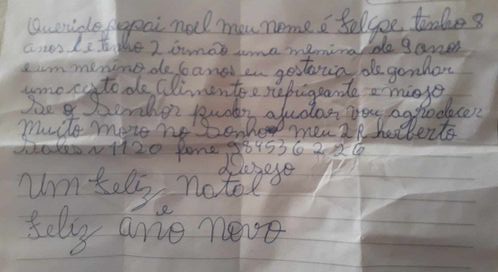 Querido papai noel meu nome é Felipe tenho 8
anos le tenho 2 irmão uma menina de 9 anos
e um menino de 6 anos eu gostaria de ganhar
uma cesta de alimento e refrigeante e miojo
Se o Senhor puder ajudar vou agradecer
Muito Moro no Sonho meu 2 R herberto
Sales n 1120 fone 984536226
Desejo
Um feliz natal
e
feliz ano novo